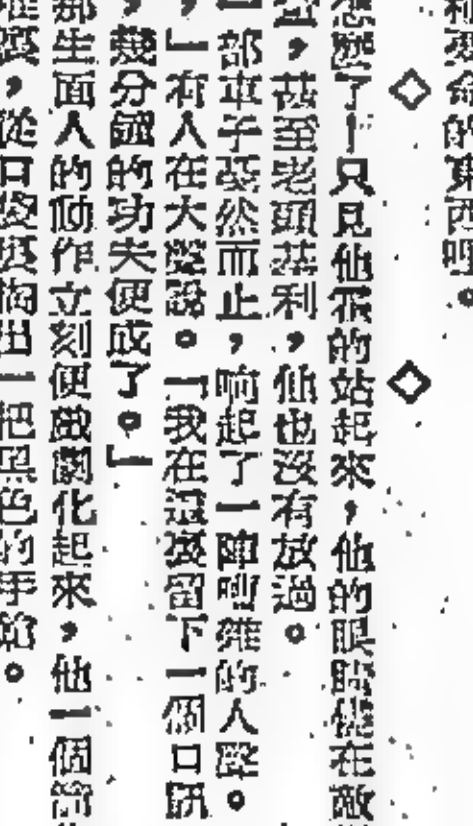 利要命的東西呢。
◇ ◇
怎麼了!只見他霍的站起來,他的眼睛像在敵
,甚至老頭基利,他也沒有放過。
一部車子戛然而止,响起了一陣嘈雜的人聲。
,」有人在大聲說。「我在這裏留下一個口訊
,幾分鐘的功夫便成了。」
那生面人的動作立刻便戲劇化起來,他一個箭
,從口袋裏掏出一把黑色的手鎗。